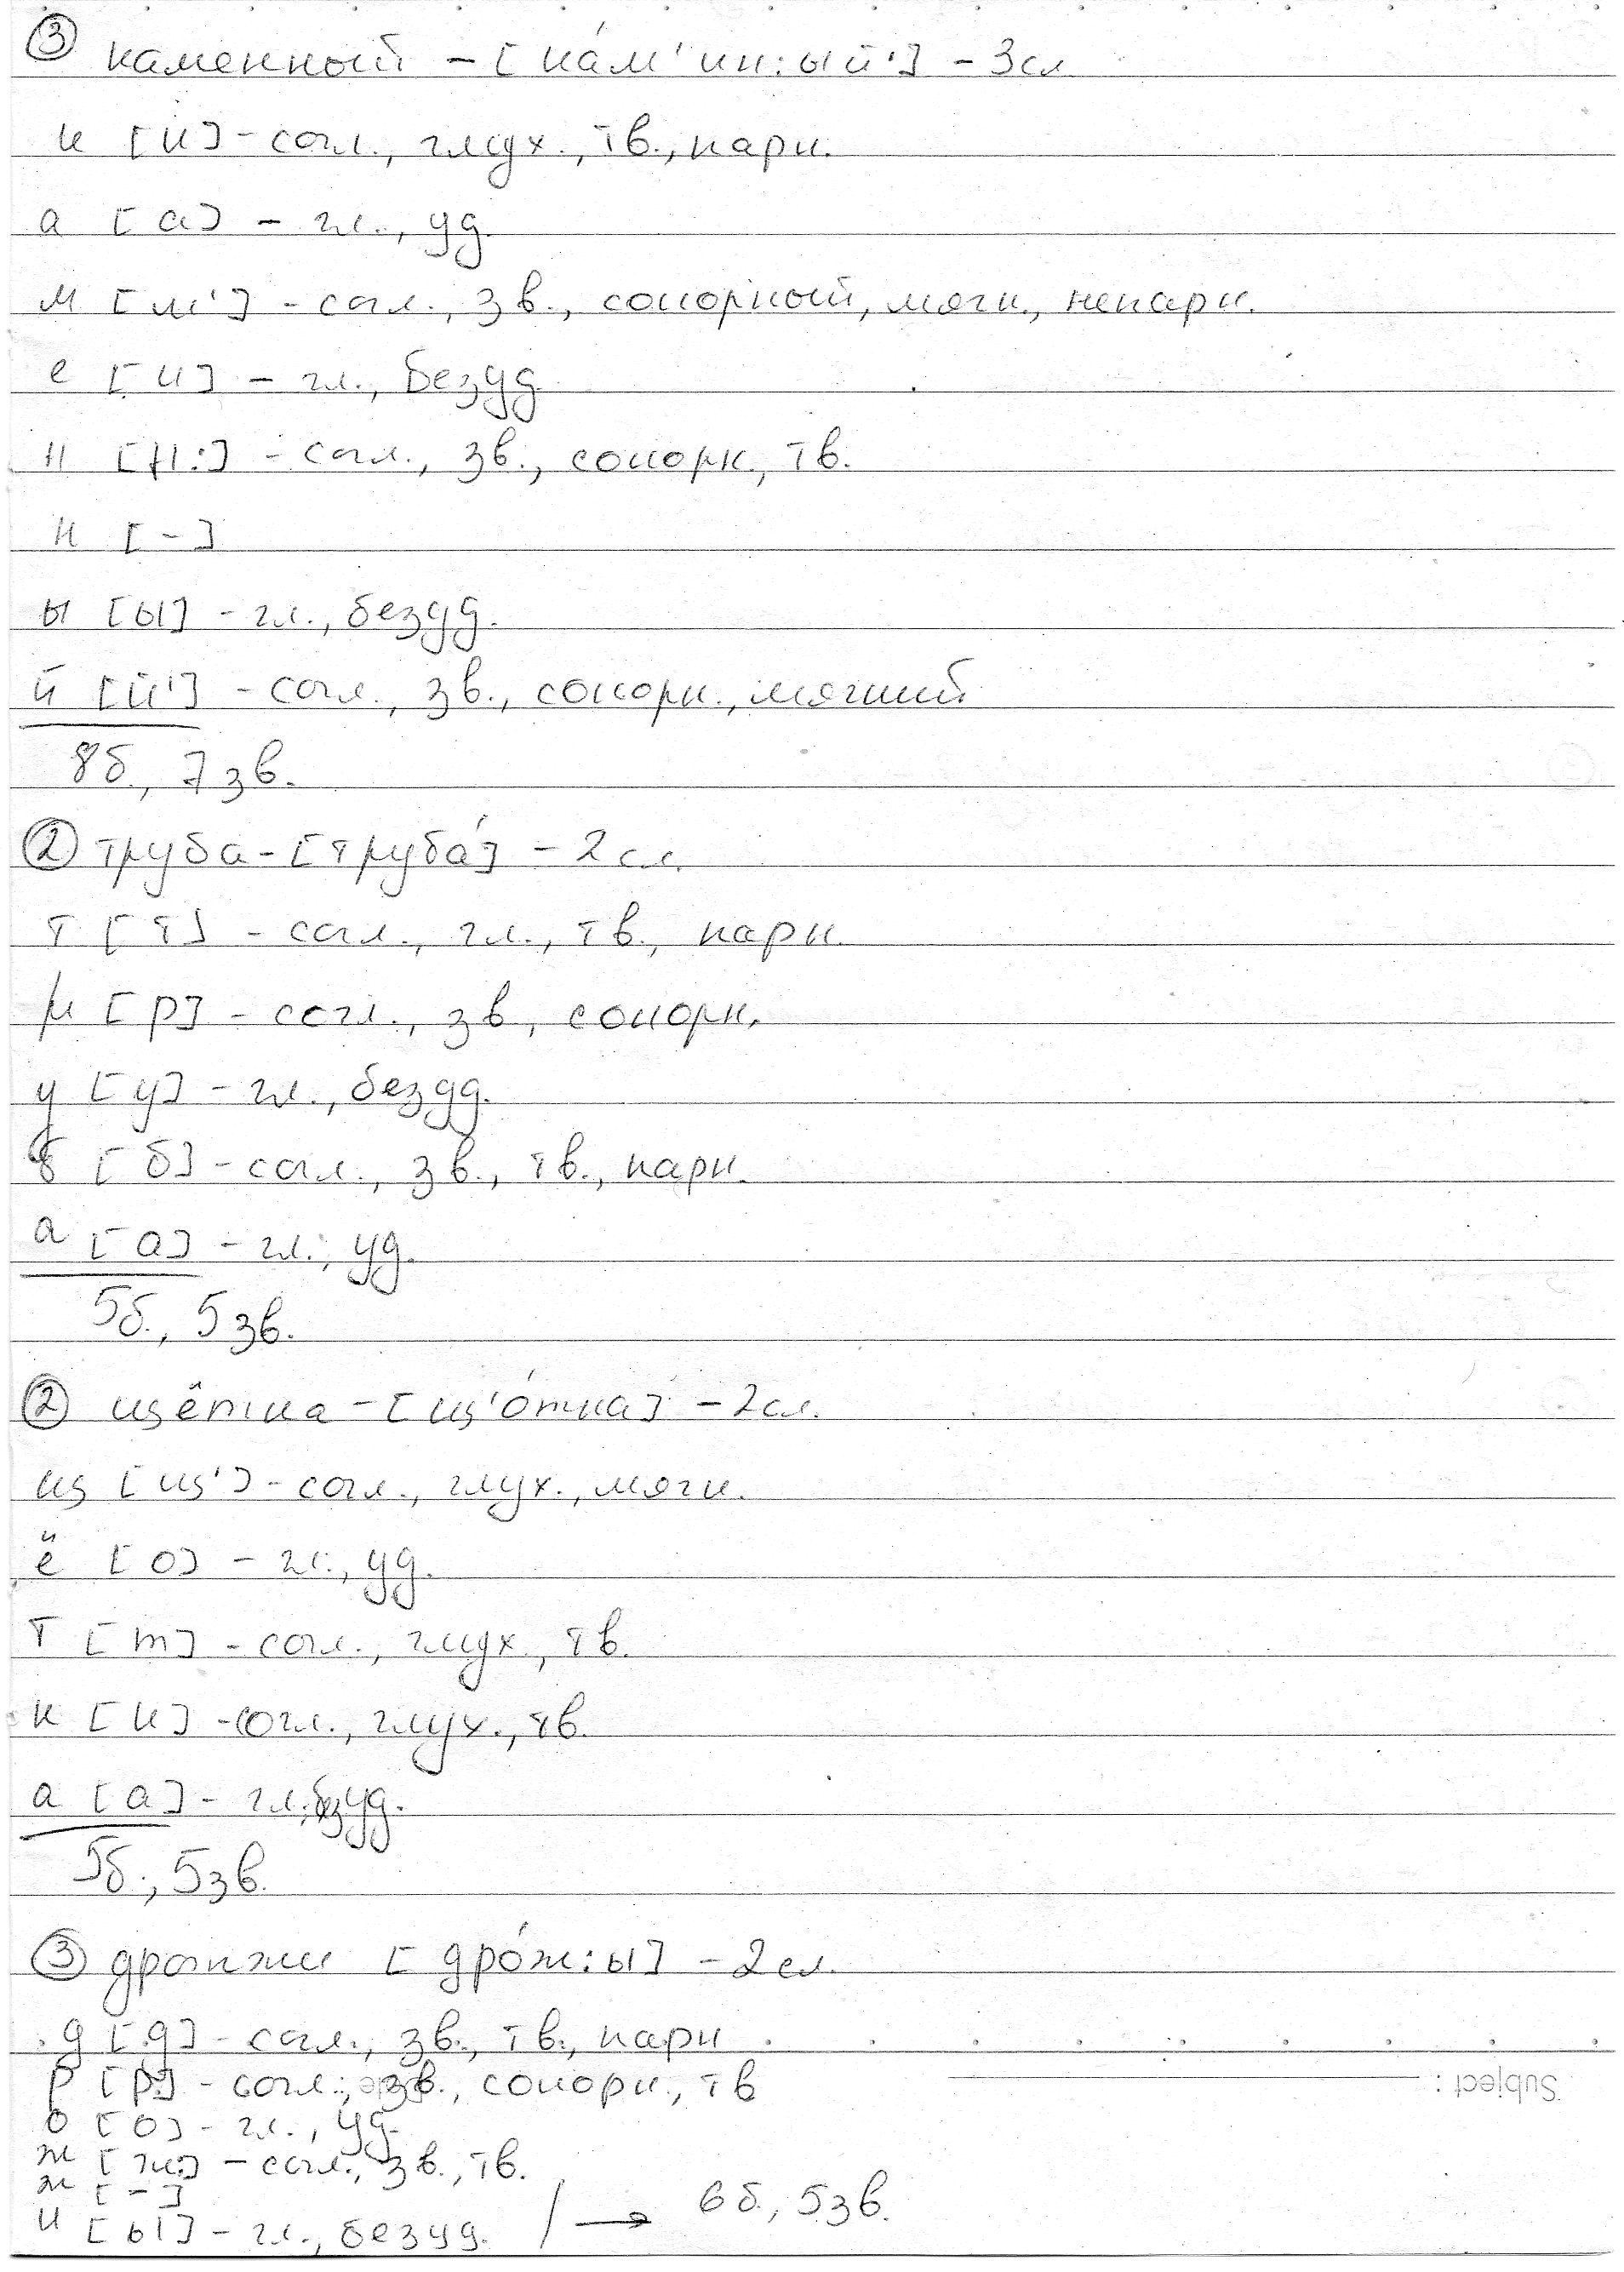 ③ каменный – [ка́м'ин:ый'] – 3сл
к [к] – согл., глух., тв., парн.
а [а] – гл., уд.
м [м'] – согл., зв., сонорный, мягк., непарн.
е [и] – гл., безуд.
н [н:] – согл., зв., сонорн., тв.
н [-]
ы [ы] – гл., безуд.
й [й'] – согл., зв., сонорн., мягкий
8б., 7зв.
② труба – [труба́] – 2 сл.
т [т] – согл., гл., тв., парн.
р [р] – согл., зв., сонорн.
у [у] – гл., безуд.
б [б] – согл., зв., тв., парн.
а [а] – гл., уд.
5б., 5зв.
② щётка – [щ'о́тка] – 2сл.
щ [щ'] – согл., глух., мягк.
ё [о] – гл., уд.
т [т] – согл., глух., тв.
к [к] – согл., глух., тв.
а [а] – гл., безуд.
5б., 5зв.
③ дрожжи [дро́ж:ы] – 2сл.
д [д] – согл., зв., тв., парн
р [р] – согл., зв., сонорн., тв
Subject :
о [о] – гл., уд.
ж [ж:] – согл., зв., тв.
ж [-]
и [ы] – гл., безуд. → 6б., 5зв.